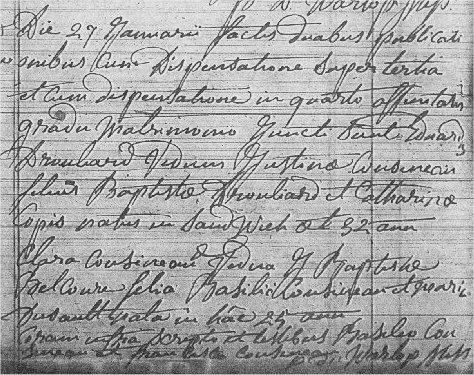 Die 27 Januarii factis duabus publicati
onibus Cum Dispensatione Super tertia
et Cum dispensatione in quarto affinitatis
gradu Matrimonio Juncti Sunt Eduard
Drouliard Viduus Justinæ Cousineau
filius Baptistæ Drouliard et Catharinæ
Copis natus in Sandwich æt 32 ann
Clara Cousineau Vidua J Baptistæ
Belcoure filia Basilii Cousineau et Mariæ
Dusault nata in hac 25 ann
Coram infra Scripto et testibus Basileo Cou
sineau et Francisco Cousineau Warlop Miss